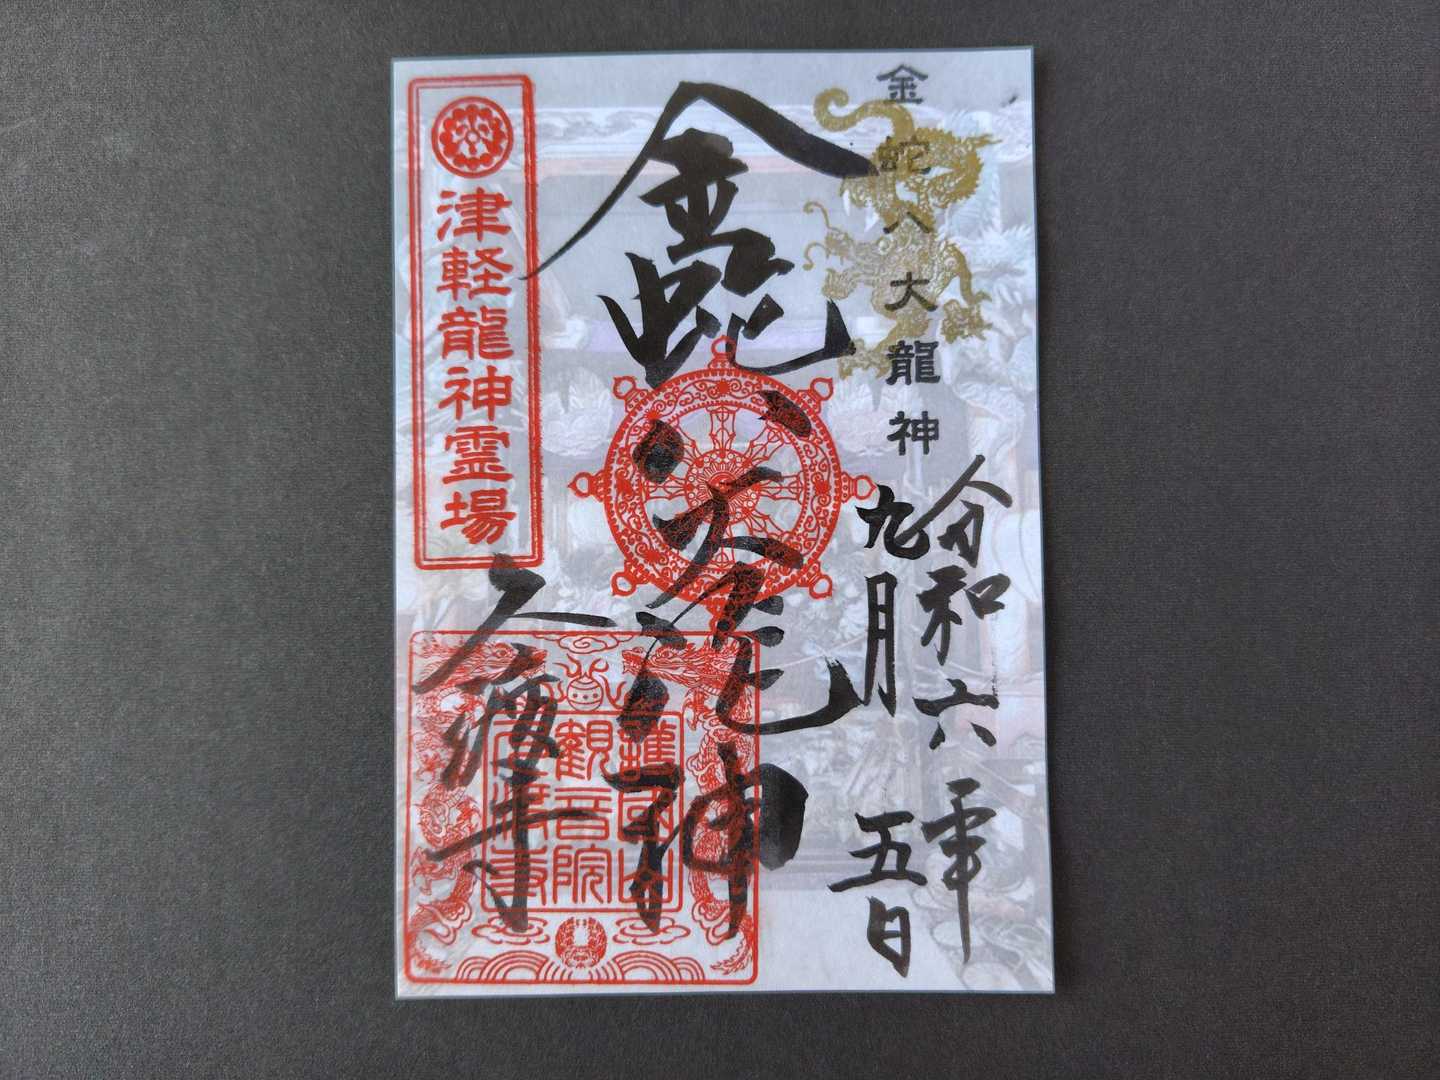 金蛇八大龍神
令和六年
九月五日
金蛇八大龍神
津軽龍神霊場
久渡寺
護國山
觀音院
久渡寺